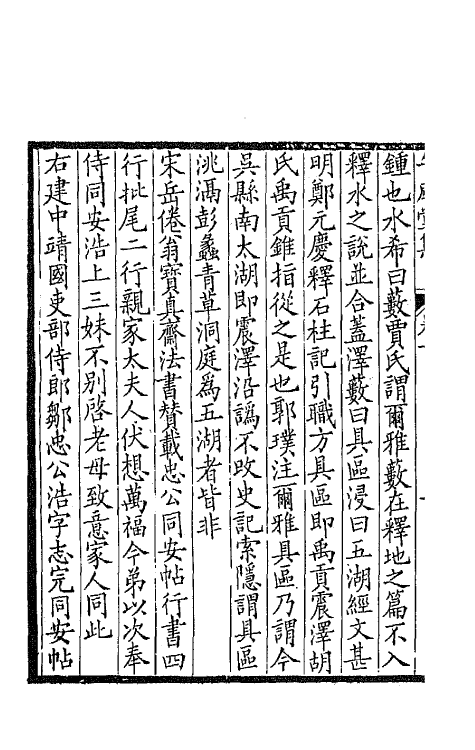 鍾也水希曰藪賈氏謂爾雅藪在釋地之篇不入
釋水之說並合蓋澤藪曰具區浸曰五湖經文甚
明鄭元慶釋石柱記引職方具區即禹貢震澤胡
氏禹貢錐指從之是也郭璞注爾雅具區乃謂今
吳縣南太湖即震澤沿譌不攺史記索隱謂具區
洮滆彭蠡青草洞庭為五湖者皆非
宋岳倦翁寶真齋法書賛載忠公同安帖行書四
行批尾二行親家太夫人伏想萬福今弟以次奉
侍同安浩上三妹不别啓老母致意家人同此
右建中靖國吏部侍郎鄒忠公浩字志完同安帖